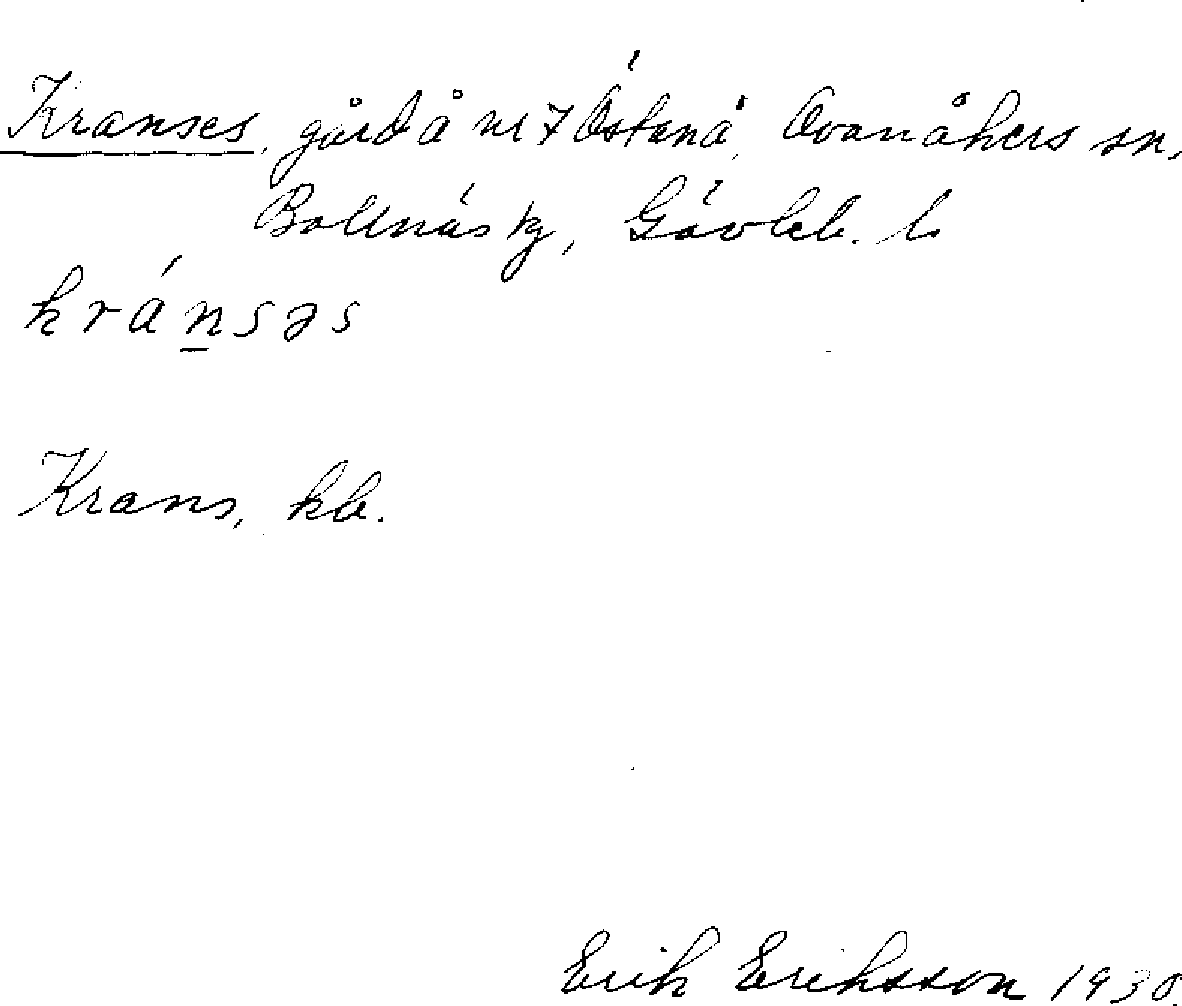 Kranses, gård å nr 7 Östanå, Ovanåkers sn,
Bollnäs kg, Gävleb. l.
kránsəs
Krans, kb.
Erik Eriksson 1930.